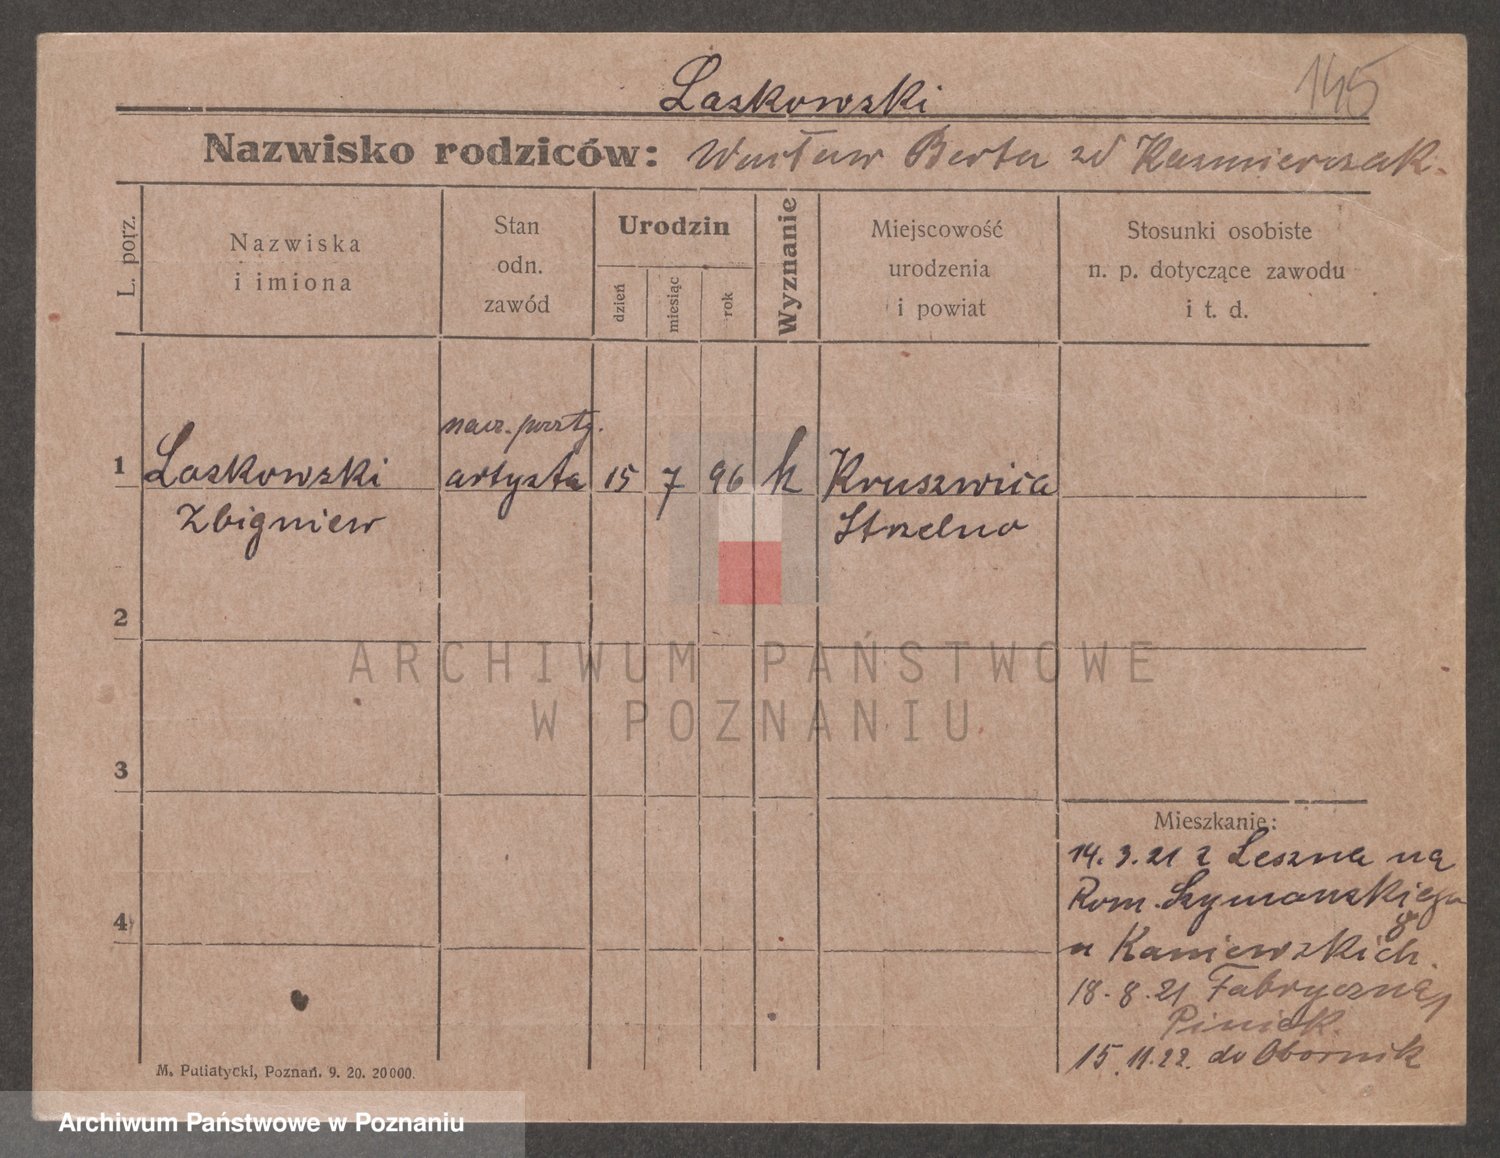 Laskowski
145
Nazwisko rodziców: Wacław Berta zd Kazmierczak.
L. porz.
Nazwiska
i imiona
Stan
odn.
zawód
Urodzin
dzień
miesiąc
rok
Wyznanie
Miejscowość
urodzenia
i powiat
Stosunki osobiste
n. p. dotyczące zawodu
i t. d.
1
Laskowski
Zbigniew
artysta
15
7
96
k
Kruszwica
Strzelno
2
3
4
Mieszkanie:
14. 3. 21 z Leszna na
Rom. Szymanskiego
u Kaniewskich.
18. 8. 21 Fabryczna 1
15. 11. 22. do Obornik
M. Putiatycki, Poznań. 9. 20. 20000.
ARCHIWUM PAŃSTWOWE
W POZNANIU
Archiwum Państwowe w Poznaniu